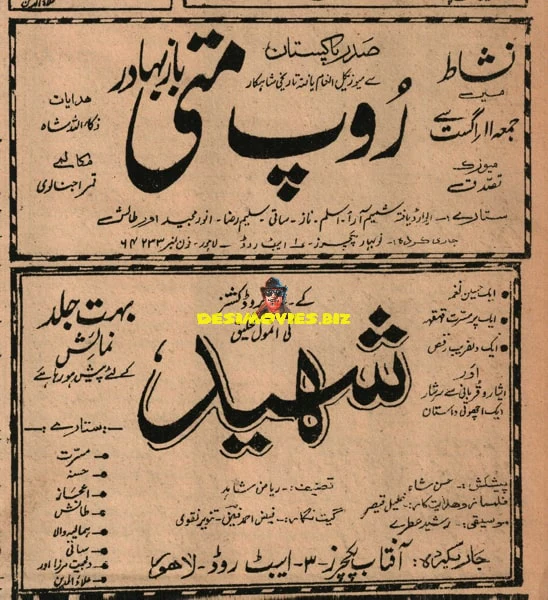 نشاط
میں
جمعہ ۱۱ اگست سے
میوزک
تصدق
صدر پاکستان
سے میوزیکل انعام یافتہ تاریخی شاہکار
رُوپ متی باز بہادر
ہدایات
ذکاء اللہ شاہ
مکالمے
قمر اجنالوی
ستارے :- ایوارڈ یافتہ شمیم آرا ۔ اسلم ۔ ناز ۔ ساقی ۔ سلیم رضا ۔ انور مجید اور طالش
جاری کردہ :- نوبہار پکچرز ۔ ایبٹ روڈ ۔ لاہور ۔ فون نمبر ۶۴۲۳۳
ایک حسین نغمہ
ایک پر مسرت قہقہہ
ایک دلفریب رقص
اور
ایثار و قربانی سے سرشار
ایک اچھوتی داستان
کے پروڈکشنز
کی انمول تخلیق
DESIMOVIES.BIZ
شہید
بہت جلد
نمائش
کے لئے پیش ہو رہا ہے
ستارے :-
مسرت
حسنہ
اعجاز
طالش
ہمالیہ والا
ساقی
دلجیت مرزا اور
علاؤالدین
پیشکش :- حسن شاہ
تصنیف :- ریاض شاہد
فلمساز و ہدایت کار :- خلیل قیصر
گیت نگار :- فیض احمد فیض ۔ تنویر نقوی
موسیقی :- رشید عطرے
جاری کردہ: آفتاب پکچرز ۔ ۳ ۔ ایبٹ روڈ ۔ لاہور